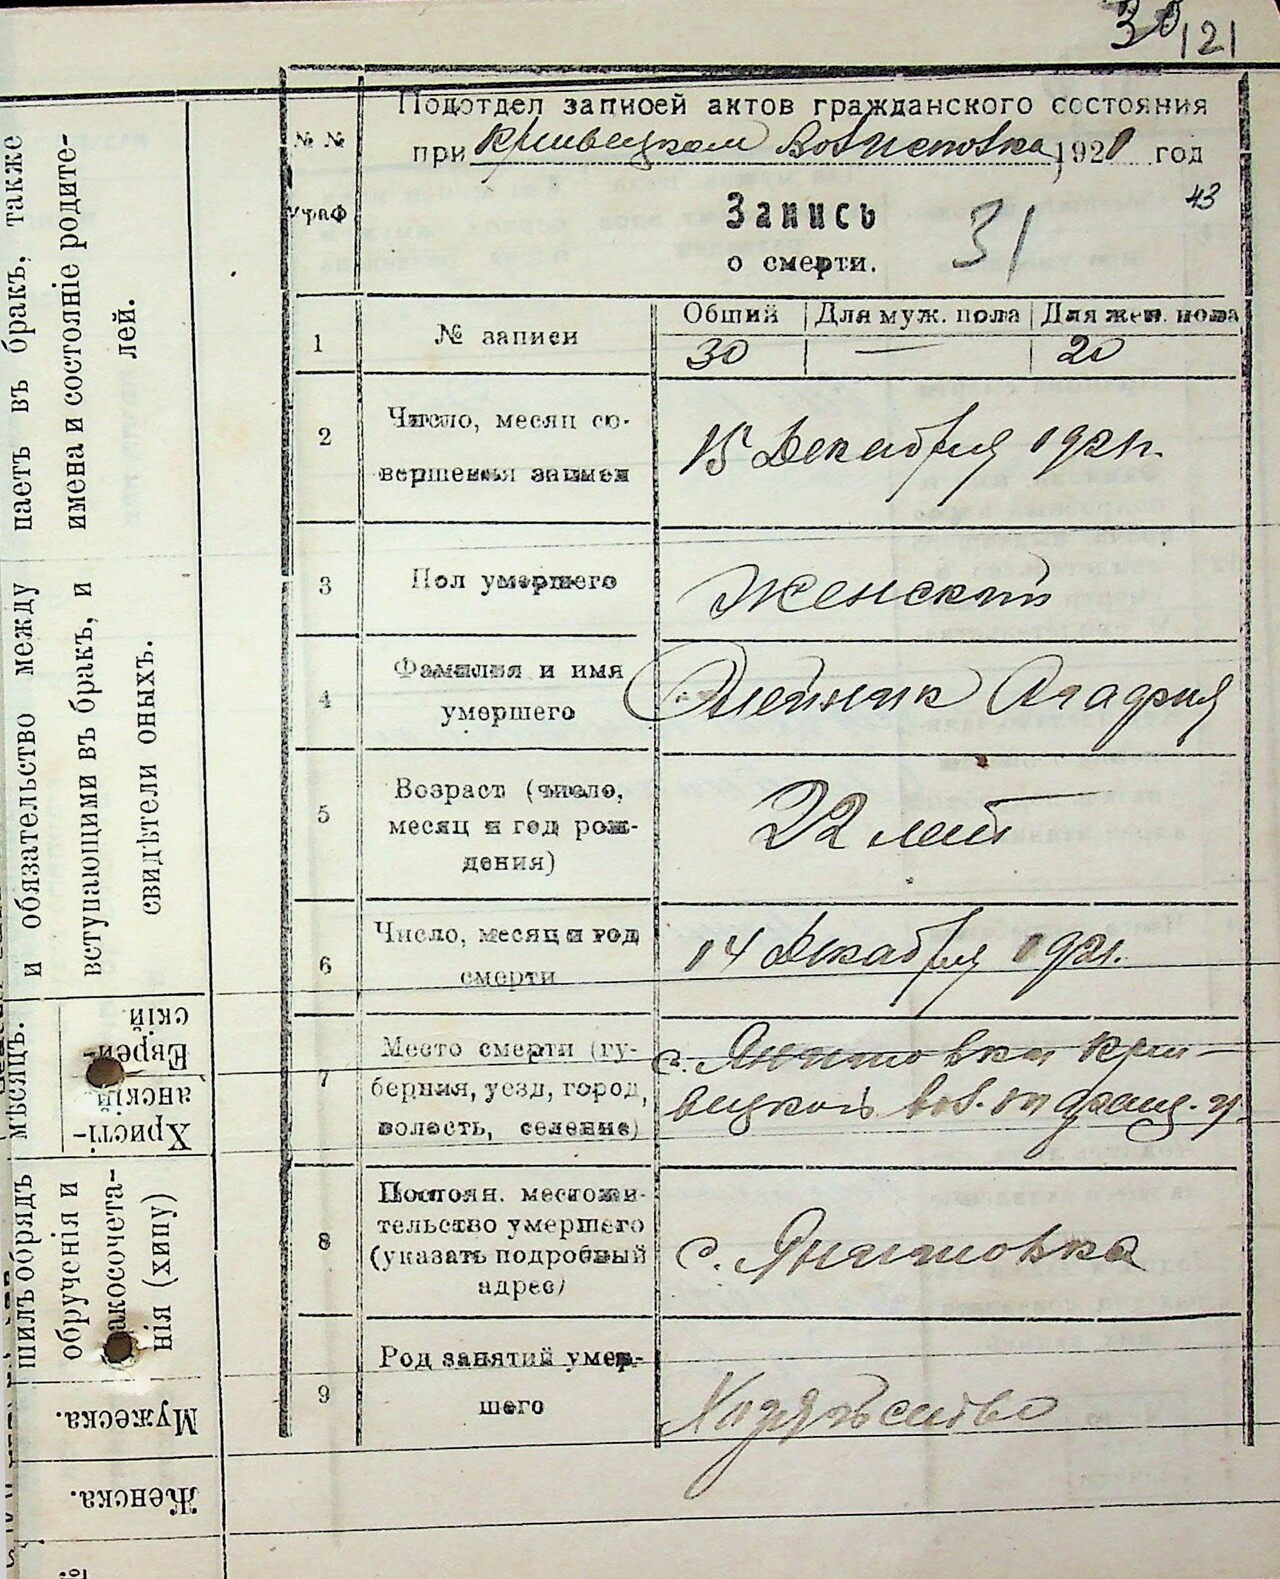 30 121
Подотдел записей актов гражданского состояния
при Кривецком Волисполкома 1921 год
№ №
граф
43
Запись
о смерти.
31
1 № записи
Общий Для муж. пола Для жен. пола
30 — 20
2 Число, месяц со-
вершения записи
15 Декабря 1921 г.
3 Пол умершего Женский
4 Фамилия и имя
умершего
Олейник Агафия
5 Возраст (число,
месяц и год рож-
дения)
22 лет
6 Число, месяц и год
смерти
14 Декабря 1921.
7 Место смерти (гу-
берния, уезд, город,
волость, селение)
с.
8 Постоян. местожи-
тельство умершего
(указать подробный
адрес)
с.
9 Род занятий умер-
шего
паетъ въ бракъ, также
имена и состояніе родите-
лей.
и обязательство между
вступающими въ бракъ, и
свидѣтели оныхъ.
мѣсяцъ.
Еврей-
скій.
Христі-
анскій.
шилъ обрядъ
обрученія и
бракосочета-
нія (хипу)
Мужеска.
Женска.